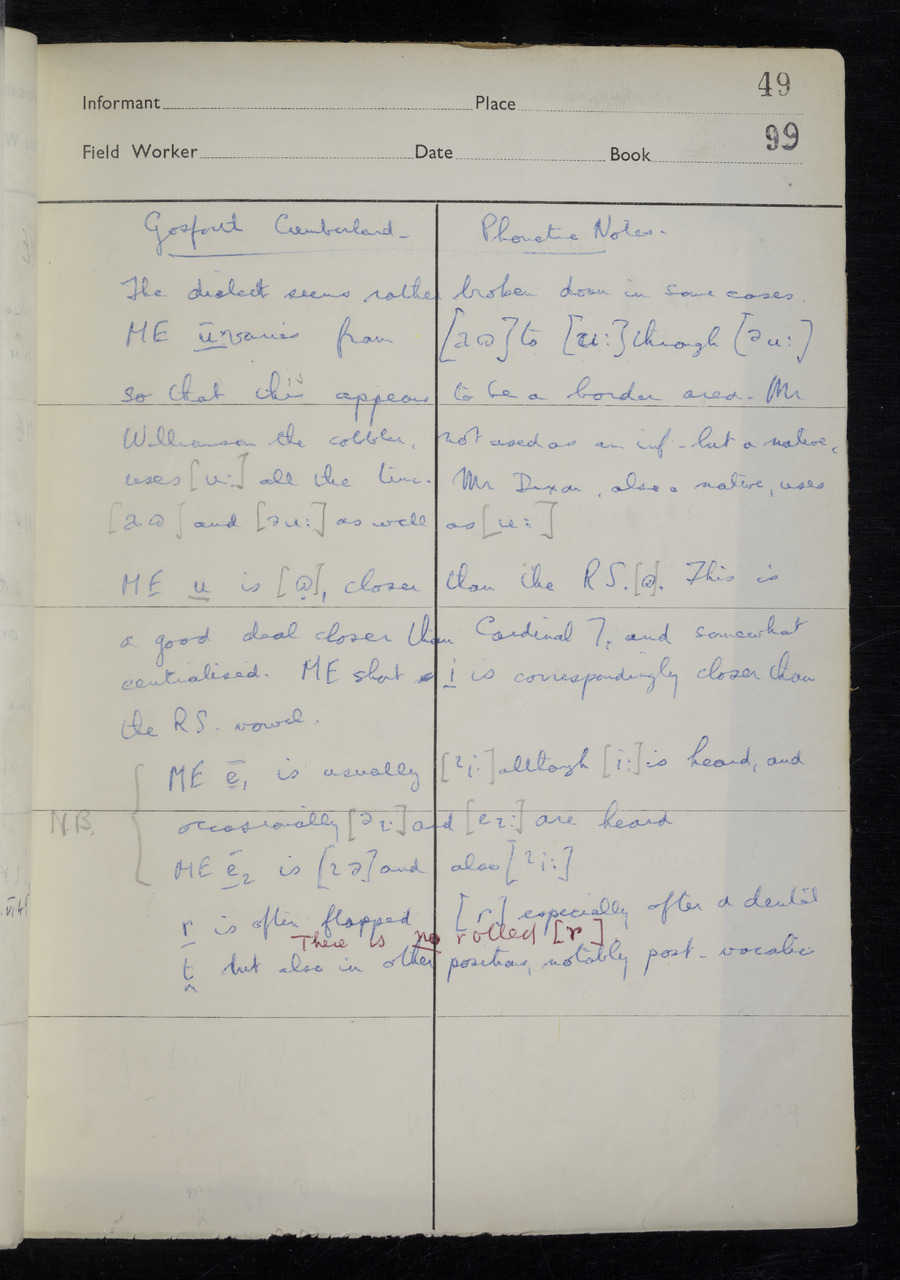 49
Informant Place
99
Field Worker Date Book
Gosforth Cumberland - Phonetic Notes.
The dialect seems rather broken down in some cases.
ME ū varies from [əɷ] to [u:] through [əu:]
so that this appears to be a border area. Mr
Williamson the cobbler, not used as an inf - but a native,
uses [u:] all the time. Mr Dixon, also a native, uses
[əɷ] and [əu:] as well as [u:]
ME u is [ɷ̣], closer than the R.S. [ɷ]. This is
a good deal closer than Cardinal 7, and somewhat
centralised. ME short i is correspondingly closer than
the R.S. vowel.
ME ē₁ is usually [ɩi:] although [i:] is heard, and
N.B. occasionally [əɩ:] and [eɩ:] are heard
ME ē₂ is [ɩə] and also [ɩi:]
r is often flapped [ɾ] especially after a dental
There is no rolled [r]
t̪ but also in other positions, notably post-vocalic